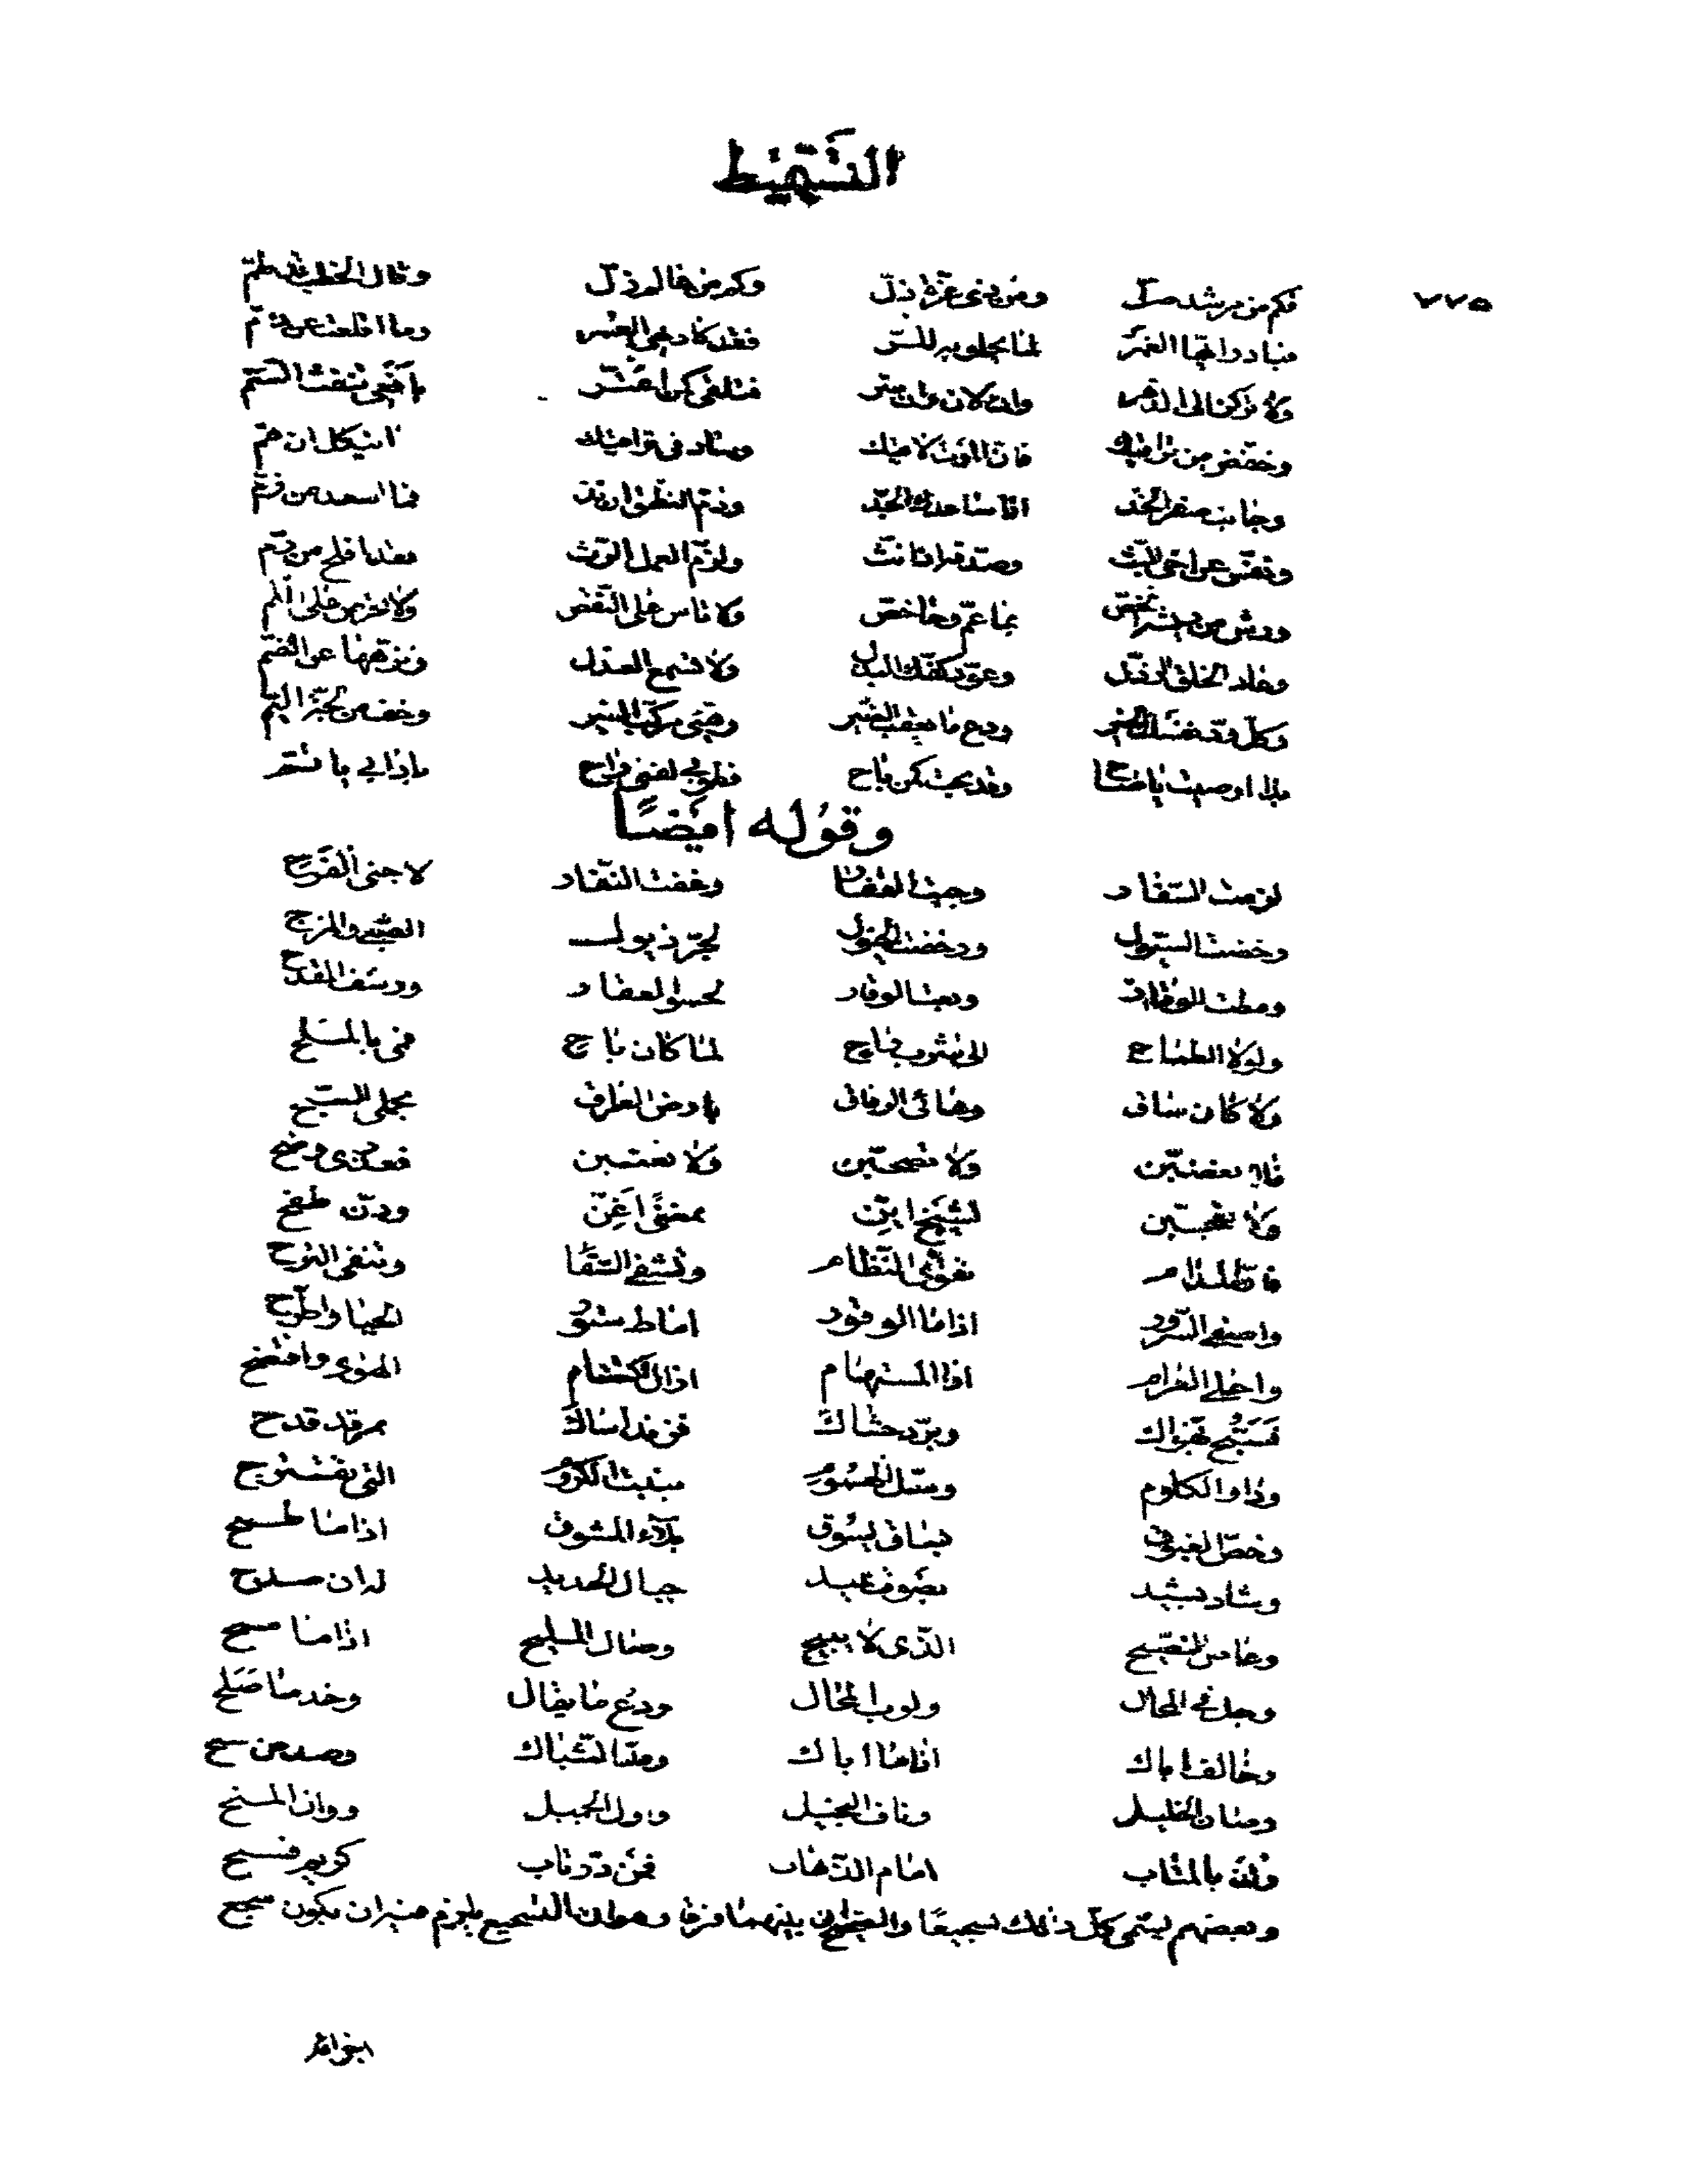 التسميط
٧٧٥
فكم من مرشد ضل ومن ذي عزة ذل وكم من عالم زل وقال الخطب قد طم
فبادر ايها الغمر لما يحلو به المر فقد كاد يهي العمر وما اقلعت عن ذم
ولا تركن الى الدهر وان لان وان سر فتلفى كمن اغتر بافعى تنفث السم
وخفض من تراقيك فان الموت لاقيك وسار في تراقيك وما ينكل ان هم
وجانب صعر الخد اذا ساعدك الجد وزم اللفظ ان ند فما اسعد من زم
ونفس عن اخي البث وصدقه اذا نث ورم العمل الرث فقد افلح من رم
ورش من ريشه انحص بما عم وما خص ولا تاس على النقص ولا تحرص على اللم
وعاد الخلق الرذل وعود كفك البذل ولا تسمع العذل ونزهها عن الضم
وزود نفسك الخير ودع ما يعقب الضير وهيئ مركب السير وخف من لجة اليم
بذا اوصيت يا صاح وقد بحت كمن باح فطوبى لفتى راح باذابي ياتم
وقوله ايضًا
لزمت السفار وجبت القفار وعفت النفار لاجني الفرح
وخضت السيول ورضت الخيول لجر ذيول الصبى والمرح
ومطت الوقار وبعت العقار لحسو العقار ورشف القدح
ولولا الطماح الى شرب راح لما كان باح فمي بالملح
ولا كان ساق دهائي الرفاق بارض العراق بحملي السبح
فلا تغضبن ولا تصخبن ولا تعتبن فعذري وضح
ولا تعجبن لشيخ ابن بمغنى اغن ودن طفح
فان المدام تقوي العظام وتشفي السقام وتنفي الترح
واصفى السرور اذا ما الوقور اماط ستور الحيا واطرح
واحلى الغرام اذا المستهام ازال اكتتام الهوى وافتضح
فبح بهواك وبرد حشاك فزند اساك به قد قدح
وداو الكلوم وسل الهموم ببنت الكروم التي تقترح
وخص الغبوق بساق يسوق بلاء المشوق اذا ما طمح
وشاد يشيد بصوت تميد جبال الحديد له ان صدح
وعاص النصيح الذي لا يبيح وصال المليح اذا ما سمح
وجل في المحال ولو بالمحال ودع ما يقال وخذ ما صلح
وفارق اباك اذا ما اباك ومد الشباك وصد من سنح
وصاف الخليل وناف البخيل واول الجميل ووال المنح
ولذ بالمتاب امام الذهاب فمن دق باب كريم فتح
وبعضهم يسمى كل ذلك تسجيعًا والصحيح ان بينهما فرقا وهو ان التسجيع يلزم فيه ان يكون سجع